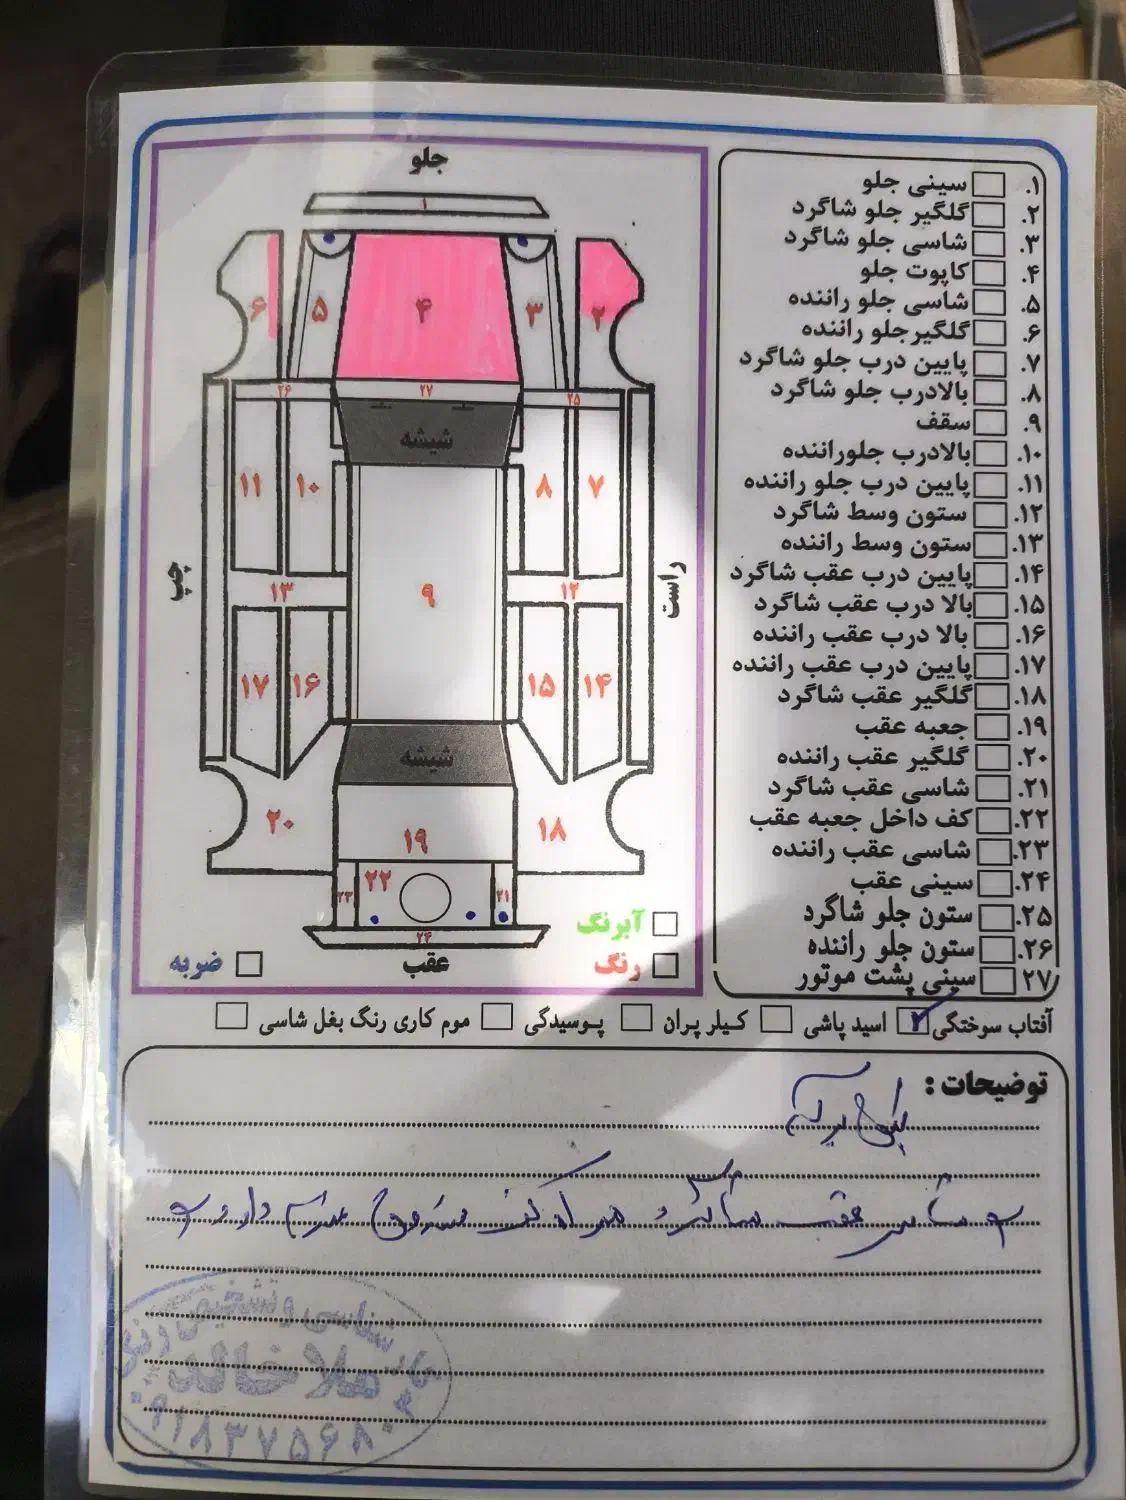 جلو
۱
۶
۵
۴
۳
۲
۲۶
۲۷
۲۵
شیشه
۱۱
۱۰
۸
۷
چپ
راست
۱۳
۹
۱۲
۱۷
۱۶
۱۵
۱۴
شیشه
۲۰
۱۹
۱۸
۲۳
۲۲
۲۱
۲۴
آبرنگ
رنگ
عقب
ضربه
۱. سینی جلو
۲. گلگیر جلو شاگرد
۳. شاسی جلو شاگرد
۴. کاپوت جلو
۵. شاسی جلو راننده
۶. گلگیرجلو راننده
۷. پایین درب جلو شاگرد
۸. بالادرب جلو شاگرد
۹. سقف
۱۰. بالادرب جلوراننده
۱۱. پایین درب جلو راننده
۱۲. ستون وسط شاگرد
۱۳. ستون وسط راننده
۱۴. پایین درب عقب شاگرد
۱۵. بالا درب عقب شاگرد
۱۶. بالا درب عقب راننده
۱۷. پایین درب عقب راننده
۱۸. گلگیر عقب شاگرد
۱۹. جعبه عقب
۲۰. گلگیر عقب راننده
۲۱. شاسی عقب شاگرد
۲۲. کف داخل جعبه عقب
۲۳. شاسی عقب راننده
۲۴. سینی عقب
۲۵. ستون جلو شاگرد
۲۶. ستون جلو راننده
۲۷ سینی پشت موتور
آفتاب سوختگی اسید پاشی کیلر پران پوسیدگی موم کاری رنگ بغل شاسی
توضیحات :
عقب شاگرد
ملا خالد